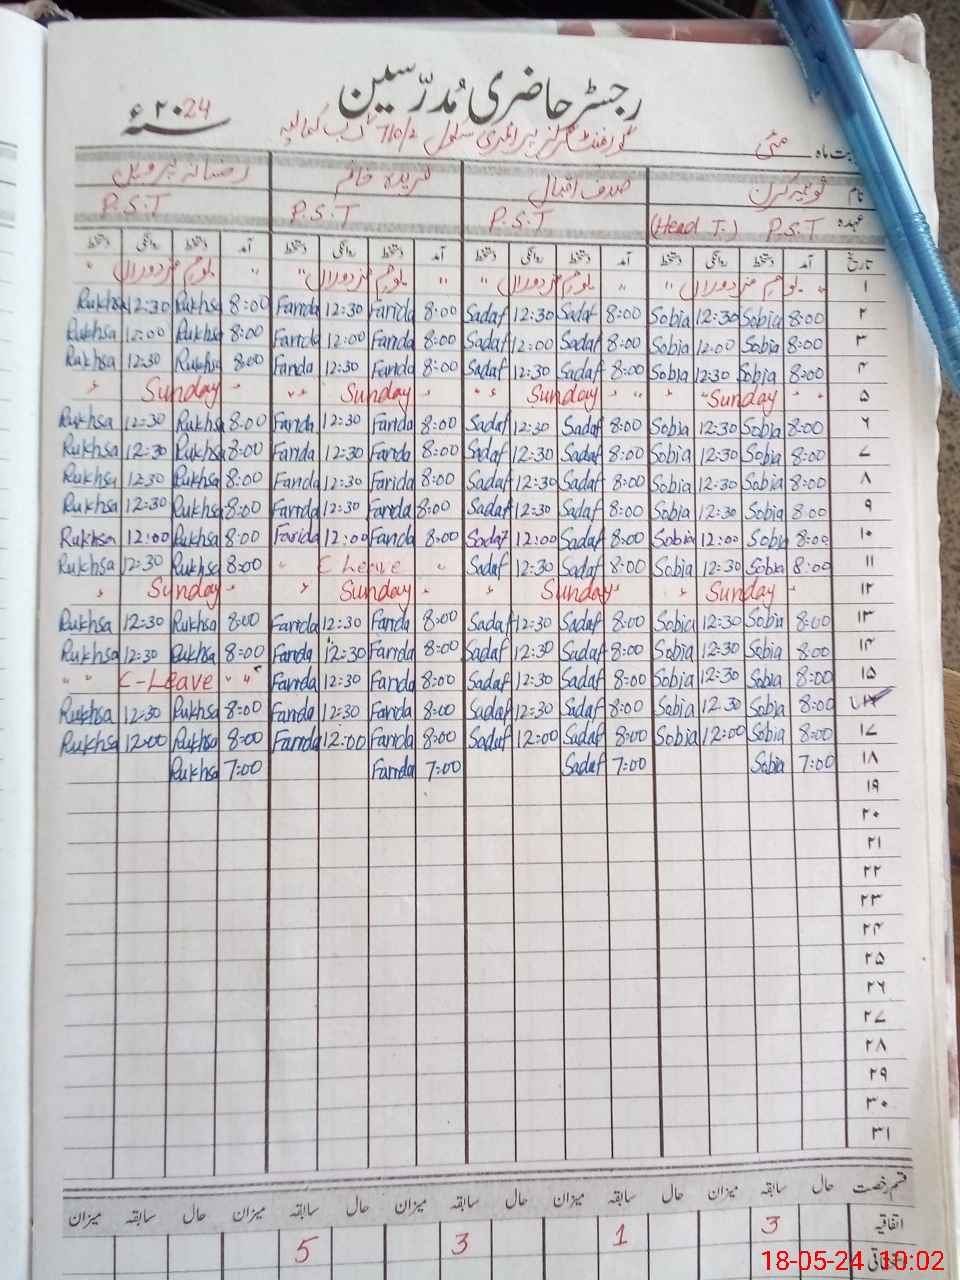 رجسٹر حاضری مُدرّسین
سنہ ۲۰24ء
گورنمنٹ گرلز پرائمری سکول 710/2 گ ب کمالیہ
بابت ماہ مئی
نام ثوبیہ کرن صدف اقبال فریدہ خانم رضوانہ پروین
عہدہ P.S.T (Head T.) P.S.T P.S.T P.S.T
تاریخ آمد دستخط روانگی دستخط آمد دستخط روانگی دستخط آمد دستخط روانگی دستخط آمد دستخط روانگی دستخط
۱ " یوم مزدوراں " " یوم مزدوراں " " یوم مزدوراں " " یوم مزدوراں "
Rukhsa 12:30 Rukhsa 8:00 Farida 12:30 Farida 8:00 Sadaf 12:30 Sadaf 8:00 Sobia 12:30 Sobia 8:00 ۲
Rukhsa 12:00 Rukhsa 8:00 Farida 12:00 Farida 8:00 Sadaf 12:00 Sadaf 8:00 Sobia 12:00 Sobia 8:00 ۳
Rukhsa 12:30 Rukhsa 8:00 Farida 12:30 Farida 8:00 Sadaf 12:30 Sadaf 8:00 Sobia 12:30 Sobia 8:00 ۴
" Sunday " " Sunday " " Sunday " " Sunday " ۵
Rukhsa 12:30 Rukhsa 8:00 Farida 12:30 Farida 8:00 Sadaf 12:30 Sadaf 8:00 Sobia 12:30 Sobia 8:00 ۶
Rukhsa 12:30 Rukhsa 8:00 Farida 12:30 Farida 8:00 Sadaf 12:30 Sadaf 8:00 Sobia 12:30 Sobia 8:00 ۷
Rukhsa 12:30 Rukhsa 8:00 Farida 12:30 Farida 8:00 Sadaf 12:30 Sadaf 8:00 Sobia 12:30 Sobia 8:00 ۸
Rukhsa 12:30 Rukhsa 8:00 Farida 12:30 Farida 8:00 Sadaf 12:30 Sadaf 8:00 Sobia 12:30 Sobia 8:00 ۹
Rukhsa 12:00 Rukhsa 8:00 Farida 12:00 Farida 8:00 Sadaf 12:00 Sadaf 8:00 Sobia 12:00 Sobia 8:00 ۱۰
Rukhsa 12:30 Rukhsa 8:00 " C Leave " Sadaf 12:30 Sadaf 8:00 Sobia 12:30 Sobia 8:00 ۱۱
" Sunday " " Sunday " " Sunday " " Sunday " ۱۲
Rukhsa 12:30 Rukhsa 8:00 Farida 12:30 Farida 8:00 Sadaf 12:30 Sadaf 8:00 Sobia 12:30 Sobia 8:00 ۱۳
Rukhsa 12:30 Rukhsa 8:00 Farida 12:30 Farida 8:00 Sadaf 12:30 Sadaf 8:00 Sobia 12:30 Sobia 8:00 ۱۴
" " C-Leave " " Farida 12:30 Farida 8:00 Sadaf 12:30 Sadaf 8:00 Sobia 12:30 Sobia 8:00 ۱۵
Rukhsa 12:30 Rukhsa 8:00 Farida 12:30 Farida 8:00 Sadaf 12:30 Sadaf 8:00 Sobia 12:30 Sobia 8:00
Rukhsa 12:00 Rukhsa 8:00 Farida 12:00 Farida 8:00 Sadaf 12:00 Sadaf 8:00 Sobia 12:00 Sobia 8:00 ۱۷
Rukhsa 7:00 Farida 7:00 Sadaf 7:00 Sobia 7:00 ۱۸
۱۹
۲۰
۲۱
۲۲
۲۳
۲۴
۲۵
۲۶
۲۷
۲۸
۲۹
۳۰
۳۱
قسم رخصت حال سابقہ میزان حال سابقہ میزان حال سابقہ میزان حال سابقہ میزان
اتفاقیہ 3 1 3 5
18-05-24 10:02